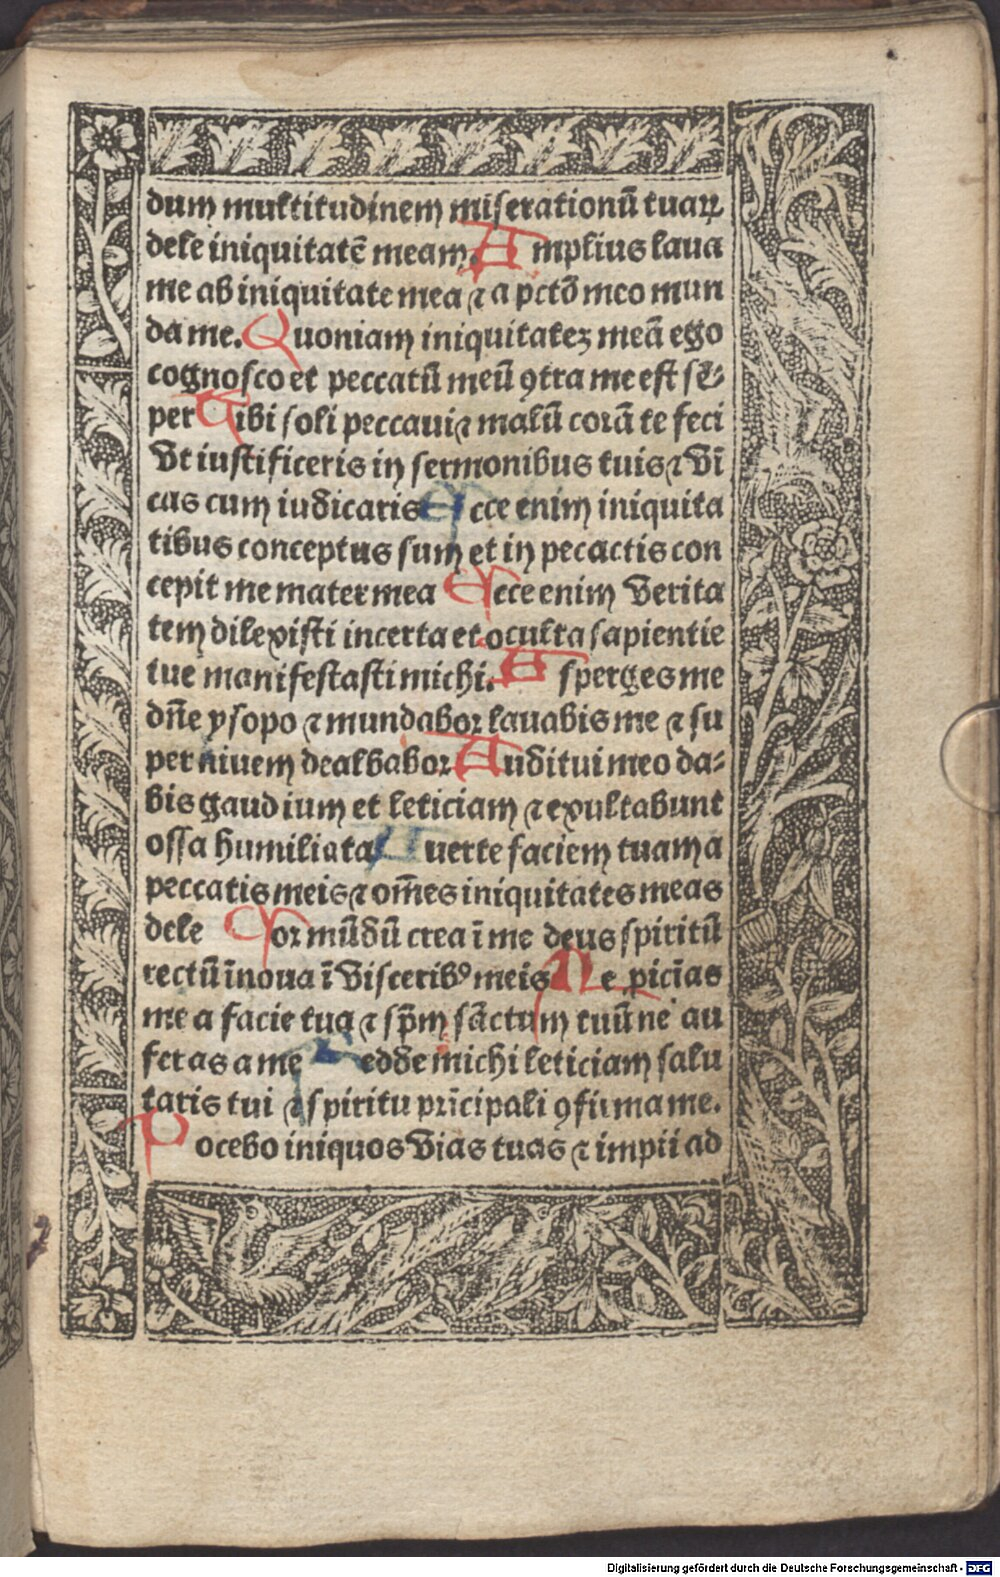 dum multitudinem miserationū tuaꝝ
dele iniquitatē meam. Amplius laua
me ab iniquitate mea ⁊ a pctō meo mun
da me. Quoniam iniquitateꝫ meā ego
cognosco et peccatū meū ꝯtra me est sē⸗
per Tibi soli peccaui ⁊ malū corā te feci
Vt iustificeris in sermonibus tuis ⁊ vī
cas cum iudicaris Ecce enim iniquita
tibus conceptus sum et in pecactis con
cepit me mater mea Ecce enim verita
tem dilexisti incerta et oculta sapientie
tue manifestasti michi. Asperges me
dn̄e ysopo ⁊ mundabor lauabis me ⁊ su
per niuem dealbabor Auditui meo da⸗
bis gaudium et leticiam ⁊ exultabunt
ossa humiliata Auerte faciem tuam a
peccatis meis ⁊ om̄es iniquitates meas
dele Cor mūdū crea ī me deus spiritū
rectū īnoua ī visceribꝰ meis Ne picīas
me a facie tua ⁊ sp̄m sāctum tuū ne au
feras a me Redde michi leticiam salu
taris tui ⁊ spiritu prīcipali ꝯfirma me.
Docebo iniquos vias tuas ⁊ impii ad
Digitalisierung gefördert durch die Deutsche Forschungsgemeinschaft - DFG